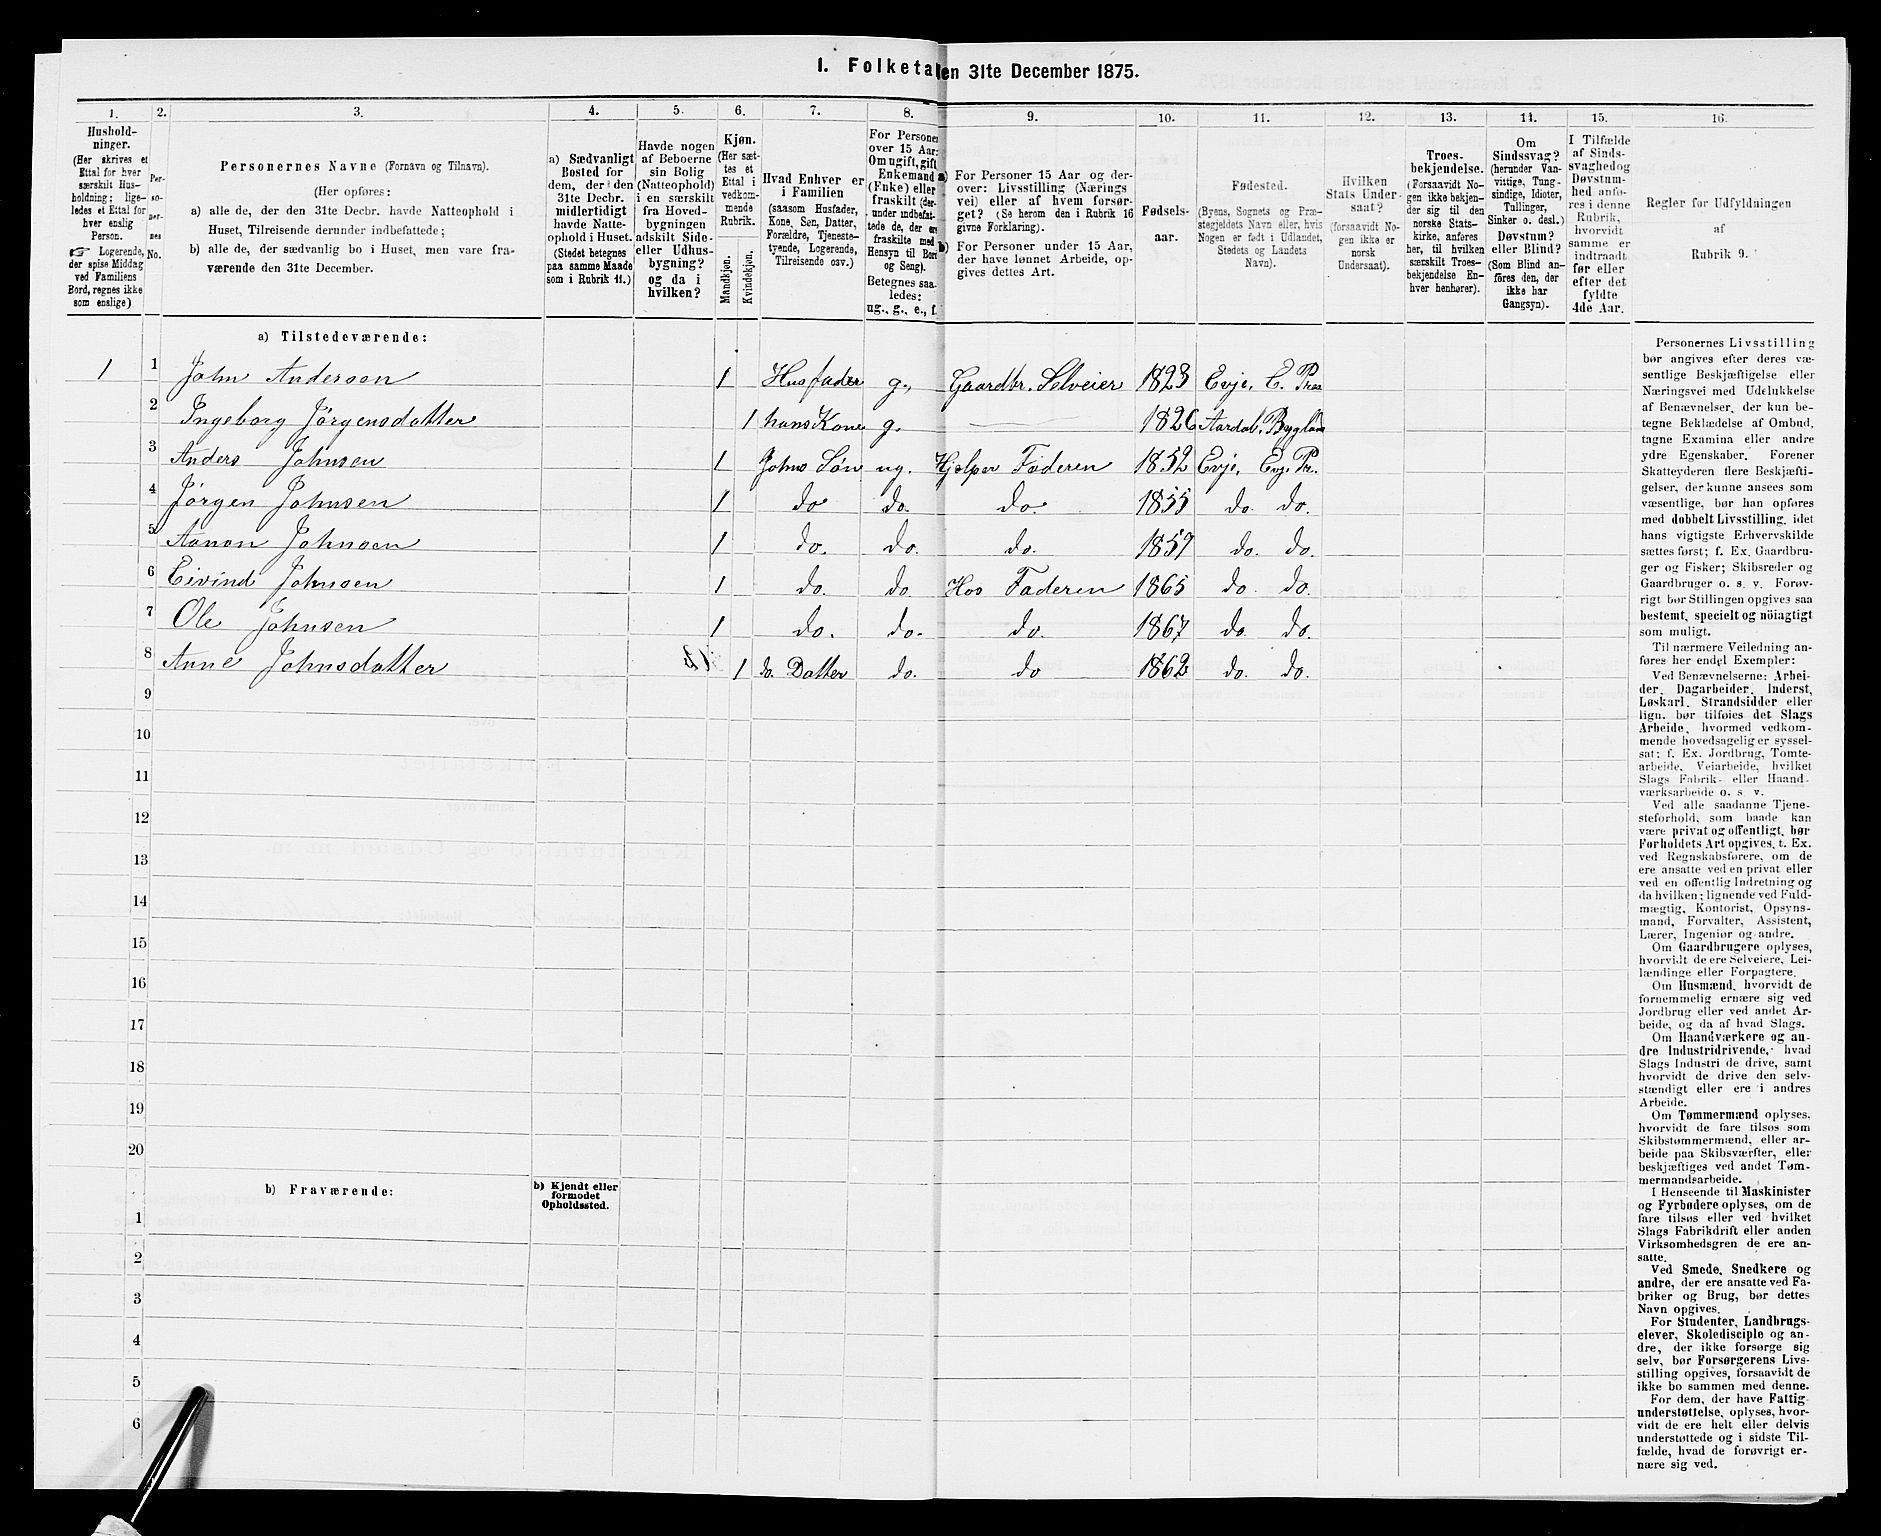 1. Folketal den 31te December 1875.
1. 2. 3. 4. 5. 6. 7. 8. 9. 10. 11. 12. 13. 14. 15. 16.
Hushold-
ninger.
(Her skrives et
Ettal for hver
særskilt Hus-
holdning; lige-
ledes et Ettal for
hver enslig
Person.
☞ Logerende,
der spise Middag
ved Familiens
Bord, regnes ikke
som enslige)
Per-
so-
ner-
nes
No.
Personernes Navne (Fornavn og Tilnavn).
(Her opføres:
a) alle de, der den 31te Decbr. havde Natteophold i
Huset, Tilreisende derunder indbefattede;
b) alle de, der sædvanlig bo i Huset, men vare fra-
værende den 31te December.
a) Sædvanligt
Bosted for
dem, der den
31te Decbr.
midlertidigt
havde Natte-
ophold i Huset.
(Stedet betegnes
paa samme Maade
som i Rubrik 11.)
Havde nogen
af Beboerne
sin Bolig
(Natteophold)
i en særskilt
fra Hoved-
bygningen
adskilt Side-
eller Udhus-
bygning?
og da i
hvilken?
Kjøn.
(Her sæt-
tes et
Ettal i
vedkom-
mende
Rubrik.
Mandkjøn.
Kvindekjøn.
Hvad Enhver er
i Familien
(saasom Husfader,
Kone, Søn, Datter,
Forældre, Tjeneste-
tyende, Logerende,
Tilreisende osv.)
For Personer
over 15 Aar:
Om ugift, gift,
Enkemand
(Enke) eller
fraskilt (der-
under indbefat-
tede de, der ere
fraskilte med
Hensyn til Bord
og Seng).
Betegnes saa-
ledes:
ug., g., e., f.
a) For Personer 15 Aar og der-
over: Livsstilling (Nærings
vei) eller af hvem forsør-
get? (Se herom den i Rubrik 16
givne Forklaring).
b) For Personer under 15 Aar,
der have lønnet Arbeide, op-
gives dettes Art.
Fødsels-
aar.
Fødested.
(Byens, Sognets og Præ-
stegjeldets Navn eller, hvis
Nogen er født i Udlandet,
Stedets og Landets
Navn).
Hvilken
Stats Under-
saat?
(forsaavidt No-
gen ikke er
norsk
Undersaat).
Troes-
bekjendelse.
(Forsaavidt No-
gen ikke bekjen-
der sig til den
norske Stats-
kirke, anføres
her, til hvilken
særskilt Troes-
bekjendelse En-
hver henhører).
Om
Sindssvag?
(herunder Van-
vittige, Tung-
sindige, Idioter,
Tullinger,
Sinker o. desl.)
Døvstum?
eller Blind?
(Som Blind an-
føres den, der
ikke har
Gangsyn).
I Tilfælde
af Sinds-
svaghed og
Døvstum-
hed anfø-
res i denne
Rubrik,
hvorvidt
samme er
indtraadt
før eller
efter det
fyldte
4de Aar.
Regler for Udfyldningen
af
Rubrik 9.
a) Tilstedeværende:
1 1 John Anderson 1 Husfader g., Gaardbr. Selveier 1823 Evje, E. Præs
2 Ingeborg Jørgensdatter 1 hans Kone g. 1826 Aardal, Bygland
3 Anders Johnsen 1 Johns Søn ug. Hjelper Faderen 1852 Evje, Evje Pr.
4 Jørgen Johnsen 1 do do. do. 1855 do. do.
5 Aanon Johnsen 1 do. do. do. 1857 do. do.
6 Eivind Johnsen 1 do. do. Hos Faderen 1865 do. do.
7 Ole Johnsen 1 do. do. do. 1867 do. do.
8 Anne Johnsdatter 1 do. Datter do. do 1862 do. do.
9
10
11
12
13
14
15
16
17
18
19
20
b) Fraværende:
b) Kjendt eller
formodet
Opholdssted.
1
2
3
4
5
6
Personernes Livsstilling
bør angives efter deres væ-
sentlige Beskjæftigelse eller
Næringsvei med Udelukkelse
af Benævnelser, der kun be-
tegne Beklædelse af Ombud,
tagne Examina eller andre
ydre Egenskaber. Forener
Skatteyderen flere Beskjæfti-
gelser, der kunne ansees som
væsentlige, bør han opføres
med dobbelt Livsstilling, idet
hans vigtigste Erhvervskilde
sættes først; f. Ex. Gaardbru-
ger og Fisker; Skibsreder og
Gaardbruger o. s. v. Forøv-
rigt bør Stillingen opgives saa
bestemt, specielt og nöiagtigt
som muligt.
Til nærmere Veiledning an-
føres her endel Exempler:
Ved Benævnelserne: Arbei-
der, Dagarbeider, Inderst,
Løskarl, Strandsidder eller
lign. bør tilføies det Slags
Arbeide, hvormed vedkom-
mende hovedsagelig er syssel-
sat; f. Ex. Jordbrug, Tomte-
arbeide, Veiarbeide, hvilket
Slags Fabrik- eller Haand-
værksarbeide o. s. v.
Ved alle saadanne Tjene-
steforhold, som baade kan
være privat og offentligt, bør
Forholdets Art opgives, t. Ex.
ved Regnskabsførere, om de
ere ansatte ved en privat eller
ved en offentlig Indretning og
da hvilken; lignende ved Fuld-
mægtig, Kontorist, Opsyns-
mand, Forvalter, Assistent,
Lærer, Ingeniør og andre.
Om Gaardbrugere oplyses,
hvorvidt de ere Selveiere, Lei-
lændinge eller Forpagtere.
Om Husmænd, hvorvidt de
fornemmelig ernære sig ved
Jordbrug eller ved andet Ar-
beide, og da af hvad Slags.
Om Haandværkere og an-
dre Industridrivende, hvad
Slags Industri de drive, samt
hvorvidt de drive den selv-
stændigt eller ere i andres
Arbeide.
Om Tømmermænd oplyses,
hvorvidt de fare tilsøs som
Skibstømmermænd, eller ar-
beide paa Skibsværfter, eller
beskjæftiges ved andet Tøm-
mermandsarbeide.
I Henseende til Maskinister
og Fyrbødere oplyses, om de
fare tilsøs eller ved hvilket
Slags Fabrikdrift eller anden
Virksomhedsgren de ere an-
satte.
Ved Smede, Snedkere og
andre, der ere ansatte ved Fa-
briker og Brug, bør dettes
Navn opgives.
For Studenter, Landbrugs-
elever, Skoledisciple og an-
dre, der ikke forsørge sig
selv, bør Forsørgerens Livs-
stilling opgives, forsaavidt de
ikke bo sammen med denne.
For dem, der have Fattig-
understøttelse, oplyses, hvor-
vidt de ere helt eller delvis
understøttede og i sidste Til-
fælde, hvad de forøvrigt er-
nære sig ved.